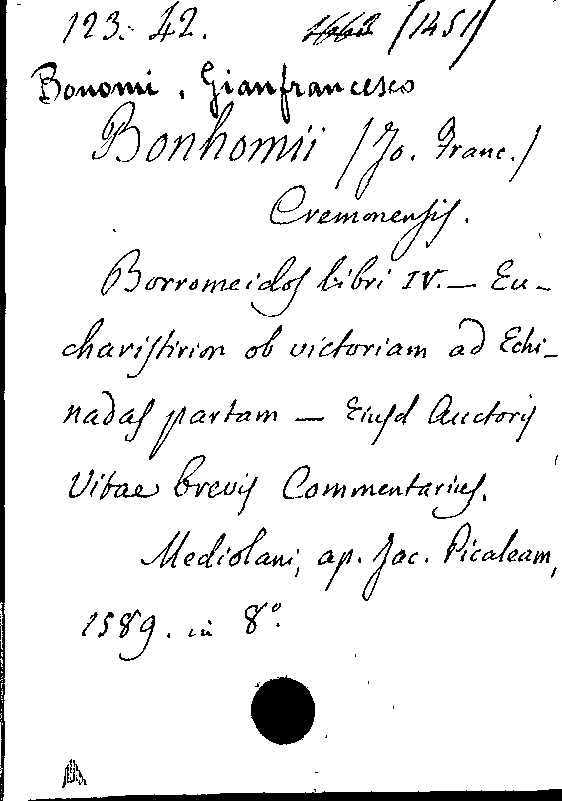 123. 42. 1663 /1451/
Bonomi, Gianfrancesco
Bonhomii /Jo. Franc./
Cremonensis.
Borromeidos libri IV. — Eu-
charistirion ob victoriam ad Echi-
nadas partam — Eiusd Auctoris
Vitae brevis Commentarius.
Mediolani, ap. Jac. Picaleam,
1589. in 8°.